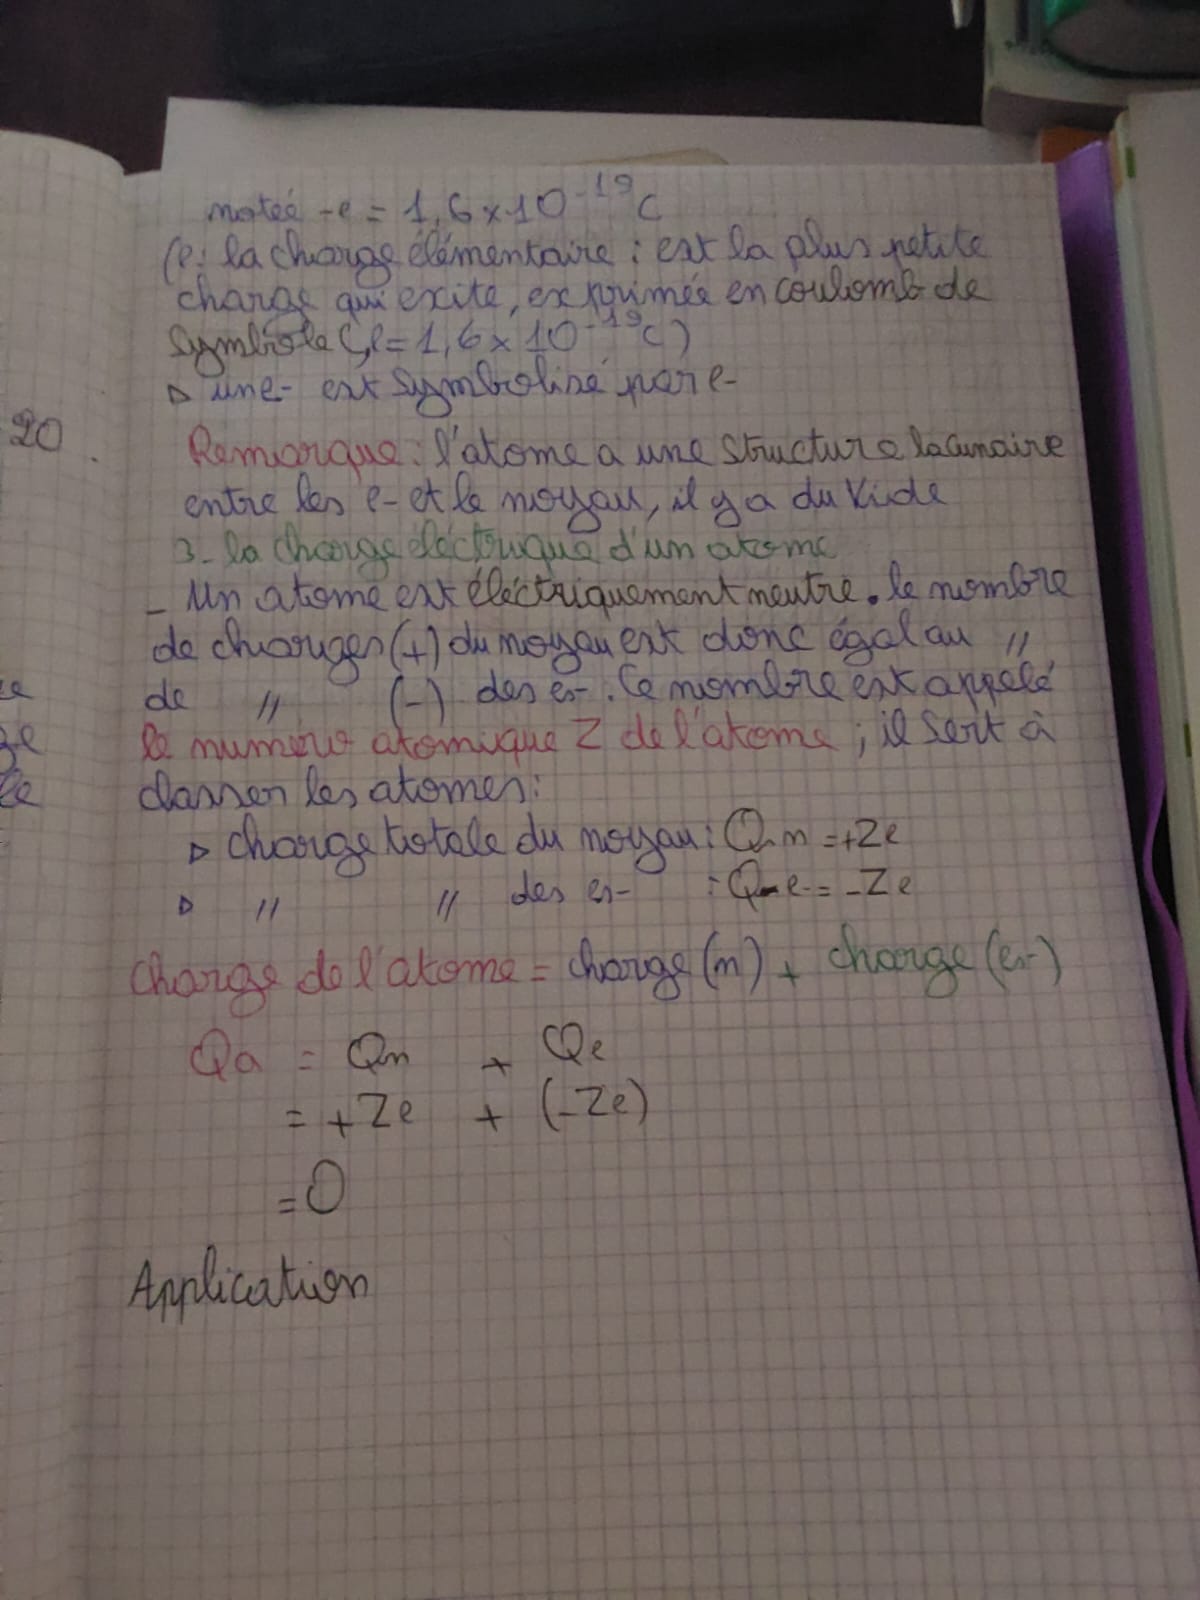 notée -e = 1,6 x 10^-19 C
(e: la charge élémentaire : est la plus petite
charge qui exite, exprimée en coulomb de
symbole C, e = 1,6 x 10^-19 C)
▷ une- est symbolisé par e-
20
Remarque : l'atome a une structure lacunaire
entre les e- et le noyau, il y a du vide
3- la charge éléctrique d'un atome
- Un atome est éléctriquement neutre. le nombre
de charges (+) du noyau est donc égal au "
de " (-) des es-. Ce nombre est appelé
le numéro atomique Z de l'atome ; il sert à
classer les atomes :
▷ charge totale du noyau : Qn = +Ze
▷ " " des es- : Qe = -Ze
charge de l'atome = charge (n) + charge (es-)
Qa = Qn + Qe
= +Ze + (-Ze)
= 0
Application